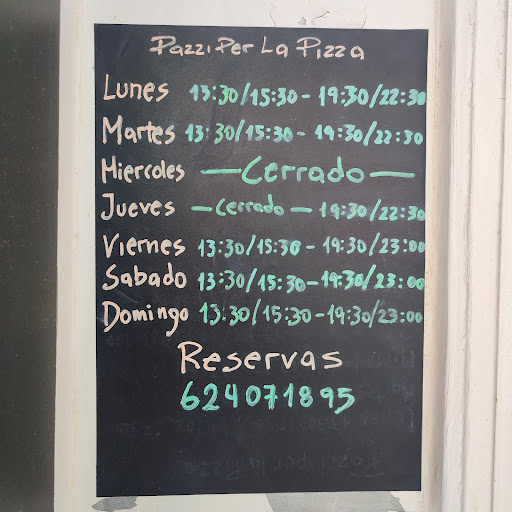 Pazzi Per La Pizza
Lunes 13:30/15:30 - 19:30/22:30
Martes 13:30/15:30 - 19:30/22:30
Miercoles — Cerrado —
Jueves — Cerrado — 19:30/22:30
Viernes 13:30/15:30 - 19:30/23:00
Sabado 13:30/15:30 - 19:30/23:00
Domingo 13:30/15:30 - 19:30/23:00
Reservas
624071895